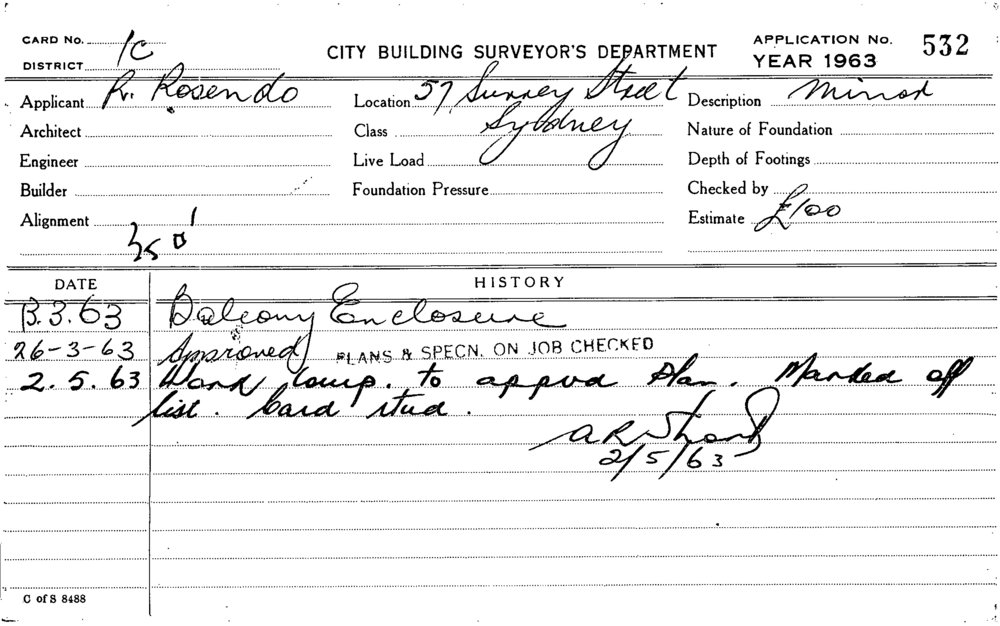 CARD No. 1C
DISTRICT
CITY BUILDING SURVEYOR'S DEPARTMENT
APPLICATION No. 532
YEAR 1963
Applicant R. Rosendo
Location 57 Surrey Street
Description Minor
Architect
Class Syddney
Nature of Foundation
Engineer
Live Load
Depth of Footings
Builder
Foundation Pressure
Checked by
Alignment
Estimate £100
DATE HISTORY
13.3.63 Balcony Enclosure
26-3-63 Approved PLANS & SPECN. ON JOB CHECKED
2.5.63 Work comp. to appvd Plan. Marked off
list. Card
2/5/63
C of S 8488